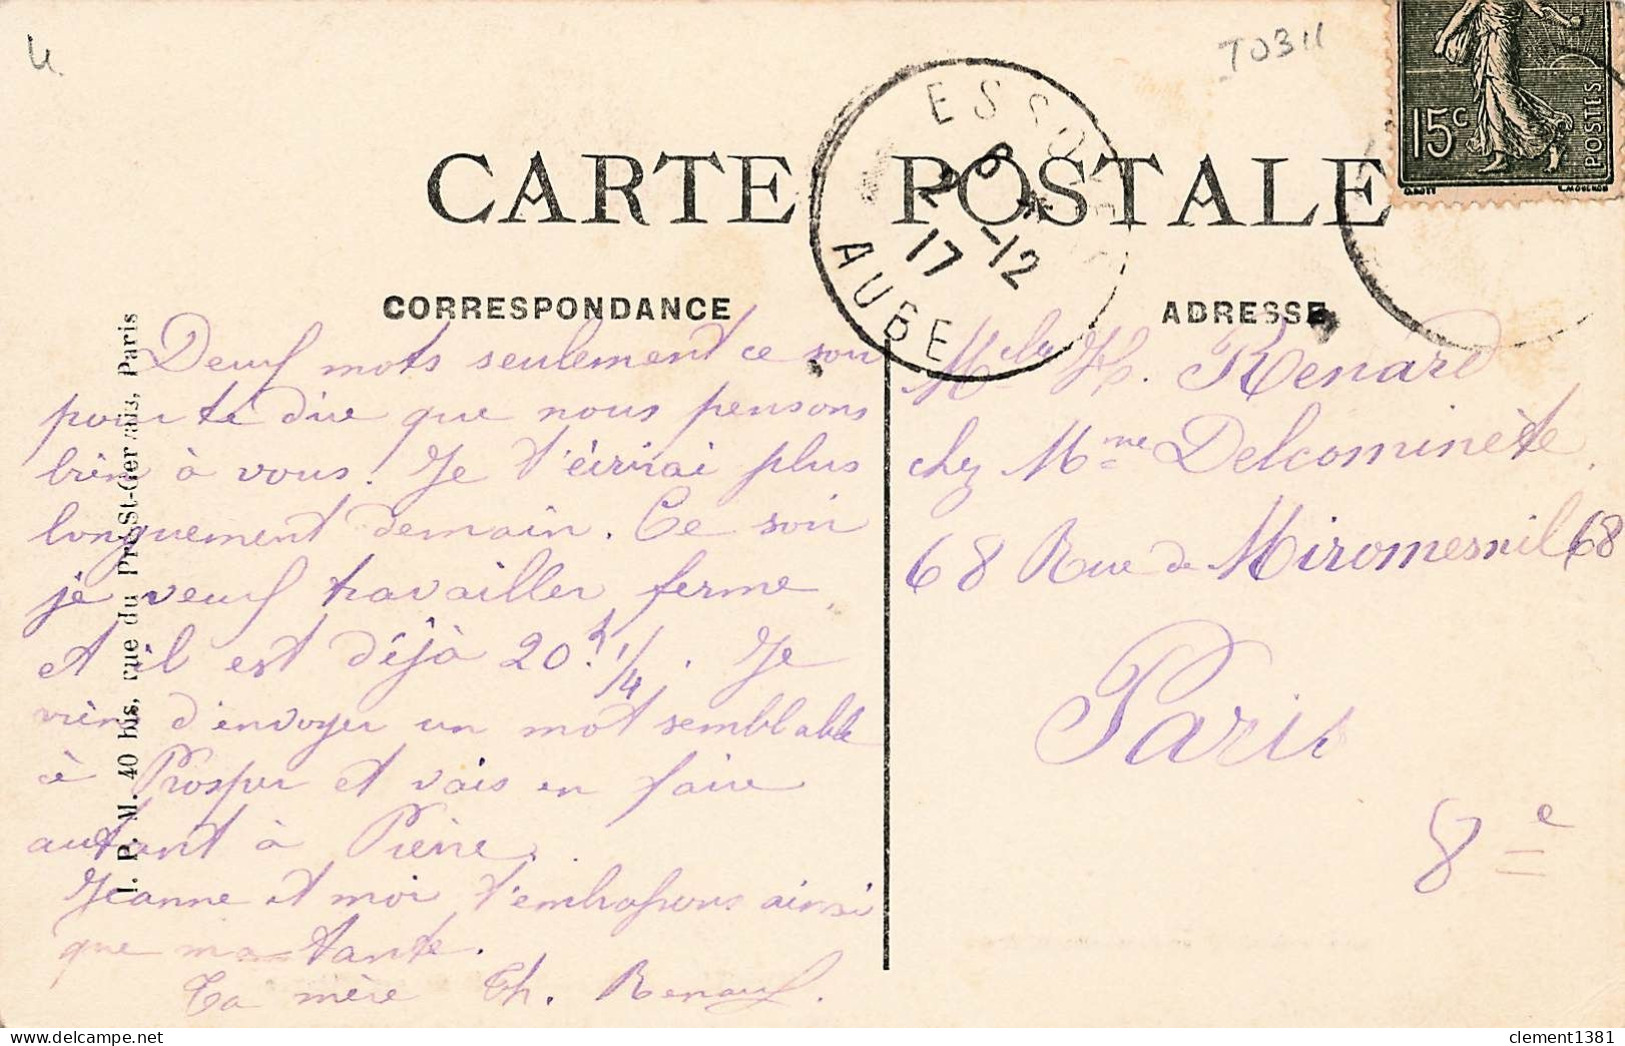 u
T0311
15c
POSTES
ESSOYES
AUBE
6 *
2 -12
17
CARTE POSTALE
CORRESPONDANCE
ADRESSE
I. P. M. 40 bis, rue du Pré-St-Gervais, Paris
Deux mots seulement ce soir
pour te dire que nous pensons
bien à vous. Je t'écrirai plus
longuement demain. Ce soir
je veux travailler ferme
et il est déjà 20h 1/4. Je
viens d'envoyer un mot semblable
à Prosper et vais en faire
autant à Pierre.
Jeanne et moi t'embrassons ainsi
que ma tante.
Ta mère Th. Renard.
Melle H. Renard
chez Mme Delcominète
68 Rue de Miromesnil 68
Paris
8e
clement1381